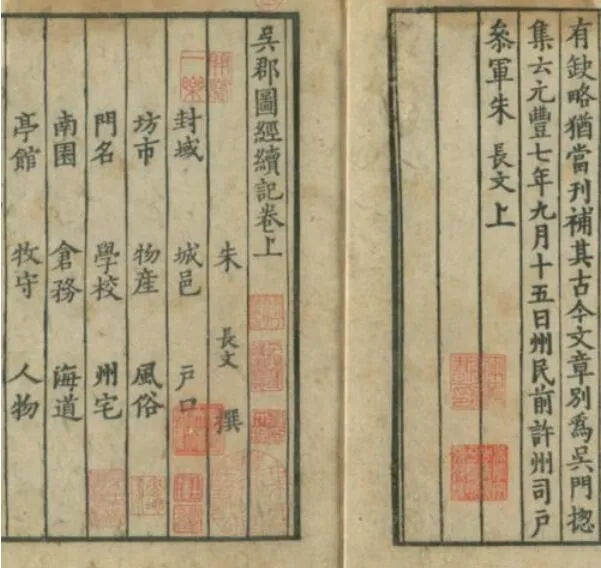 有缺略猶當刊補其古今文章別爲吳門揔
集云元豐七年九月十五日州民前許州司戶
叅軍朱 長文 上
吳郡圖經續記卷上
朱 長文 撰
封域 城邑 戶口
坊市 物産 風俗
門名 學校 州宅
南園 倉務 海道
亭館 牧守 人物